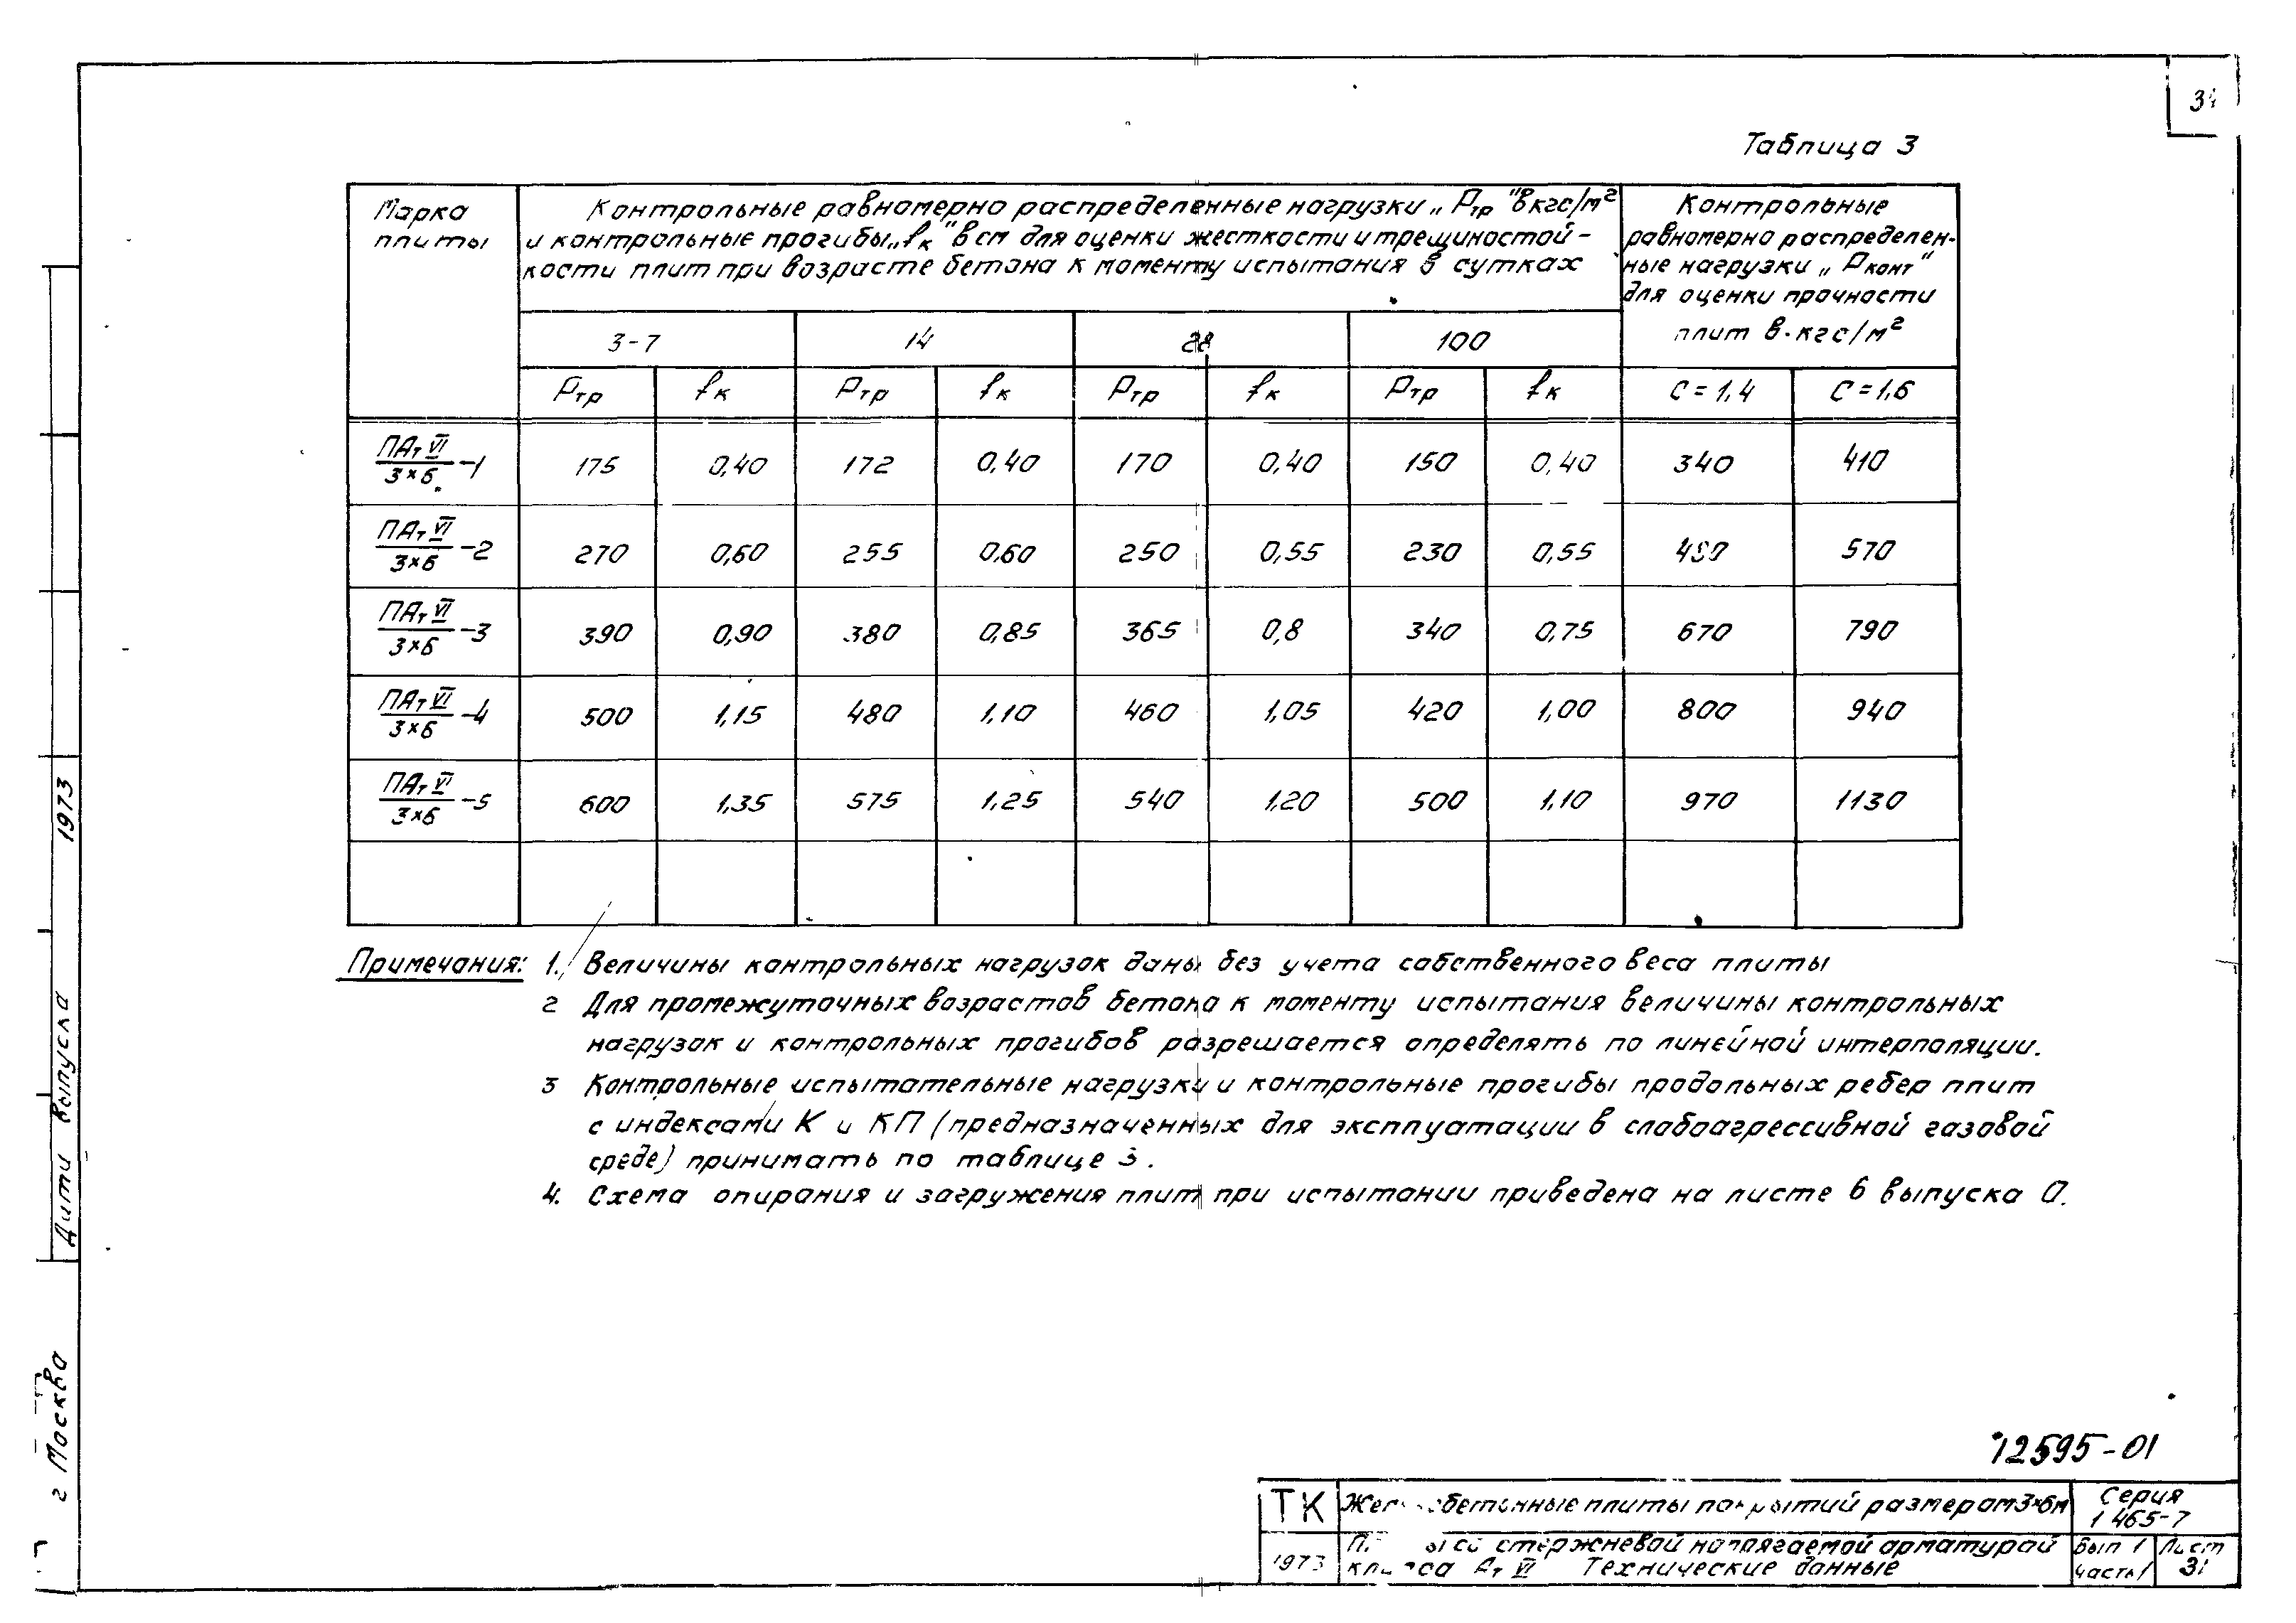 Таблица 3
Марка плиты
Контрольные равномерно распределенные нагрузки „Pтр" в кгс/м²
и контрольные прогибы „fк" в см для оценки жесткости и трещиностой-
кости плит при возрасте бетона к моменту испытания в сутках
Контрольные
равномерно распределен-
ные нагрузки „Pконт"
для оценки прочности
плит в кгс/м²
3-7 14 28 100
Pтр fк Pтр fк Pтр fк Pтр fк C = 1,4 C = 1,6
ПАт VI/3×6 -1 175 0,40 172 0,40 170 0,40 150 0,40 340 410
ПАт VI/3×6 -2 270 0,60 255 0,60 250 0,55 230 0,55 480 570
ПАт VI/3×6 -3 390 0,90 380 0,85 365 0,8 340 0,75 670 790
ПАт VI/3×6 -4 500 1,15 480 1,10 460 1,05 420 1,00 800 940
ПАт VI/3×6 -5 600 1,35 575 1,25 540 1,20 500 1,10 970 1130
Примечания: 1. Величины контрольных нагрузок даны без учета собственного веса плиты
2 Для промежуточных возрастов бетона к моменту испытания величины контрольных
нагрузок и контрольных прогибов разрешается определять по линейной интерполяции.
3 Контрольные испытательные нагрузки и контрольные прогибы продольных ребер плит
с индексами К и КП (предназначенных для эксплуатации в слабоагрессивной газовой
среде) принимать по таблице 3.
4. Схема опирания и загружения плит при испытании приведена на листе 6 выпуска 0.
12595-01
ТК
Железобетонные плиты покрытий размером 3×6м
Серия
1 465-7
1973
стержневой напрягаемой арматурой
класса Ат VI Технические данные
Вып 1
часть 1
Лист
31
г Москва
Дата выпуска 1973